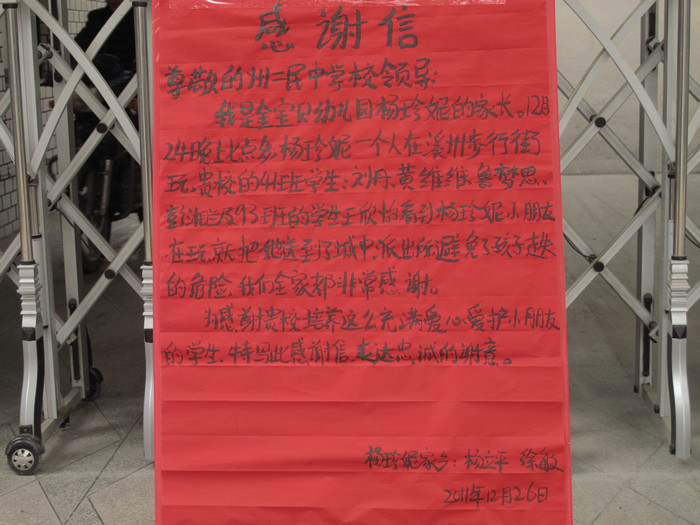 感谢信
尊敬的州二民中学校领导：
我是金宝贝幼儿园杨玲妮的家长。12月
24日晚上七点多，杨玲妮一个人在溪州步行街
玩，贵校的41班学生：刘丹、黄维维、鲁梦思、
彭湘兰及93班的学生王欣怡看到杨玲妮小朋友
在玩，就把他送到了城中派出所避免了孩子走失
的危险，我们全家都非常感谢。
为感谢贵校培养这么充满爱心爱护小朋友
的学生，特写此感谢信，表达忠诚的谢意。
杨玲妮家长：杨立平 徐敏
2011年12月26日